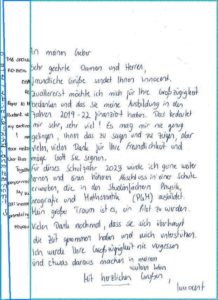 An meinen Geber
Sehr geehrte Damen und Herren,
freundliche Grüße sendet Ihnen Innocent.
Zuallererst möchte ich mich für Ihre Großzügigkeit
bedanken und das sie meine Ausbildung in den
Jahren 2019-22 finanziert haben. Das bedeutet
mir sehr, sehr viel! Es mag mir nie genug
gelingen, Ihnen das zu sagen und zu zeigen, aber
vielen, vielen Dank für Ihre Freundlichkeit und
möge Gott Sie segnen.
Für dieses Schuljahr 2023 würde ich gerne weiter
lernen und einen höheren Abschluss in einer Schule
erwerben, die in den Studienfächern Physik,
Geografie und Mathematik (PGM) ausbildet.
Mein großer Traum ist es, ein Pilot zu werden.
Vielen Dank nochmal, dass sie sich überhaupt
die Zeit genommen haben und mich unterstützen.
Ich werde Ihre Großzügigkeit nie vergessen
und etwas daraus machen in meinem
Mit herzlichen Grüßen,
Innocent